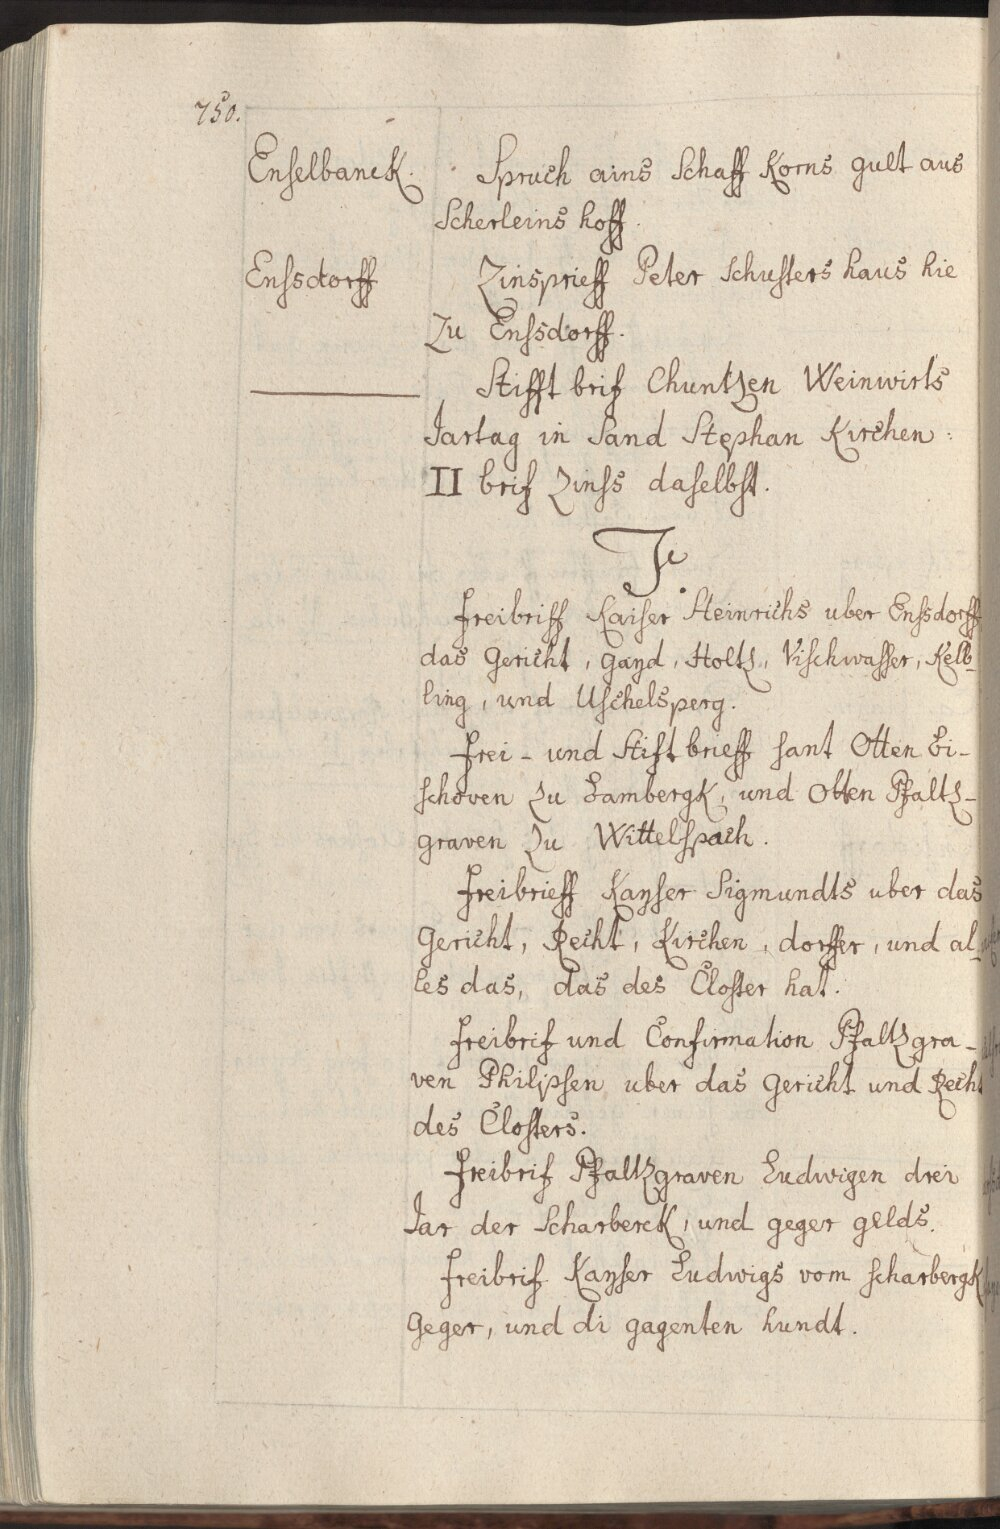 750.
Enselbanck. Spruch ains Schaff Korns gult aus
Scherleins hoff.
Enssdorff Zinsprieff Peter Schusters haus hie
Zu Enssdorff.
Stifft brif Chuntzen Weinwirts
Jartag in Sand Stephan Kirchen:
II brif Zinss daselbst.
F
Freibriff Kaiser Heinrichs uber Enssdorff
das Gericht, gayd, Holtz, Vischwasser, Kelb-
ling, und Uschelsperg.
Frei- und Stift brieff sant Otten Bi-
schoven zu Bambergk, und Otten Pfaltz-
graven zu Wittelspach.
Freibrieff Kayser Sigmundts uber das
Gericht, Recht, Kirchen, dorffer, und al-
les das, das des Closter hat.
Freibrif und Confirmation Pfaltzgra-
ven Philipsen uber das Gericht und Recht
des Closters.
Freibrif Pfaltzgraven Ludwigen drei
Jar der Scharberck, und geger gelds.
Freibrif Kayser Ludwigs vom scharbergk
geger, und di gagenten hundt.